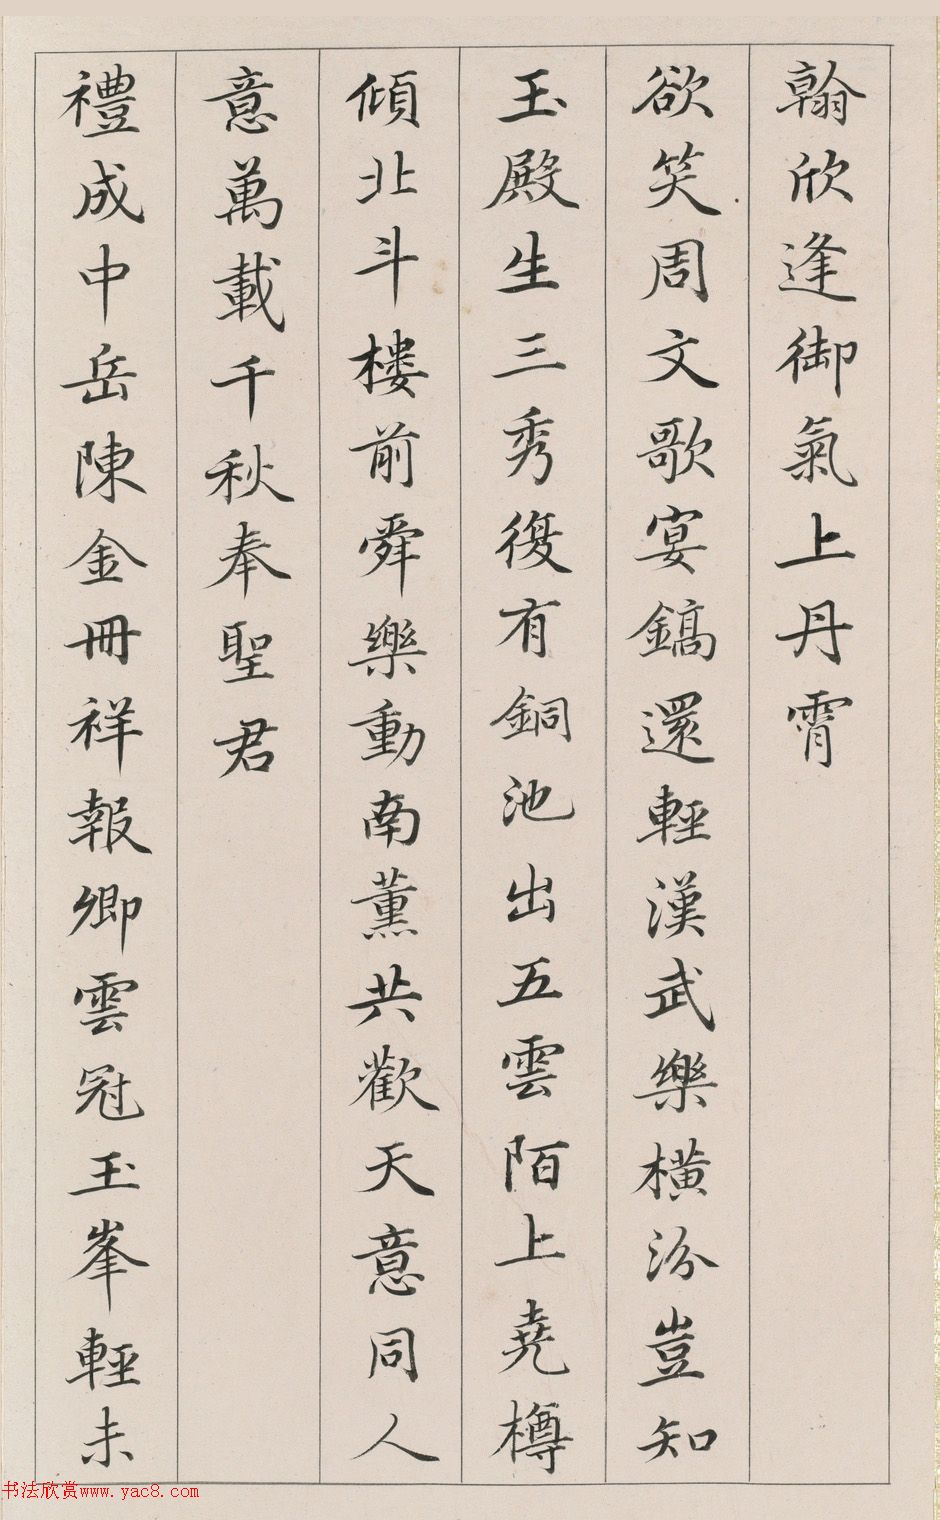 翰欣逢御氣上丹霄
欲笑周文歌宴鎬還輕漢武樂橫汾豈知
玉殿生三秀復有銅池出五雲陌上堯樽
傾北斗樓前舜樂動南薰共歡天意同人
意萬載千秋奉聖君
禮成中岳陳金冊祥報卿雲冠玉峯輕未
书法欣赏www.yac8.com